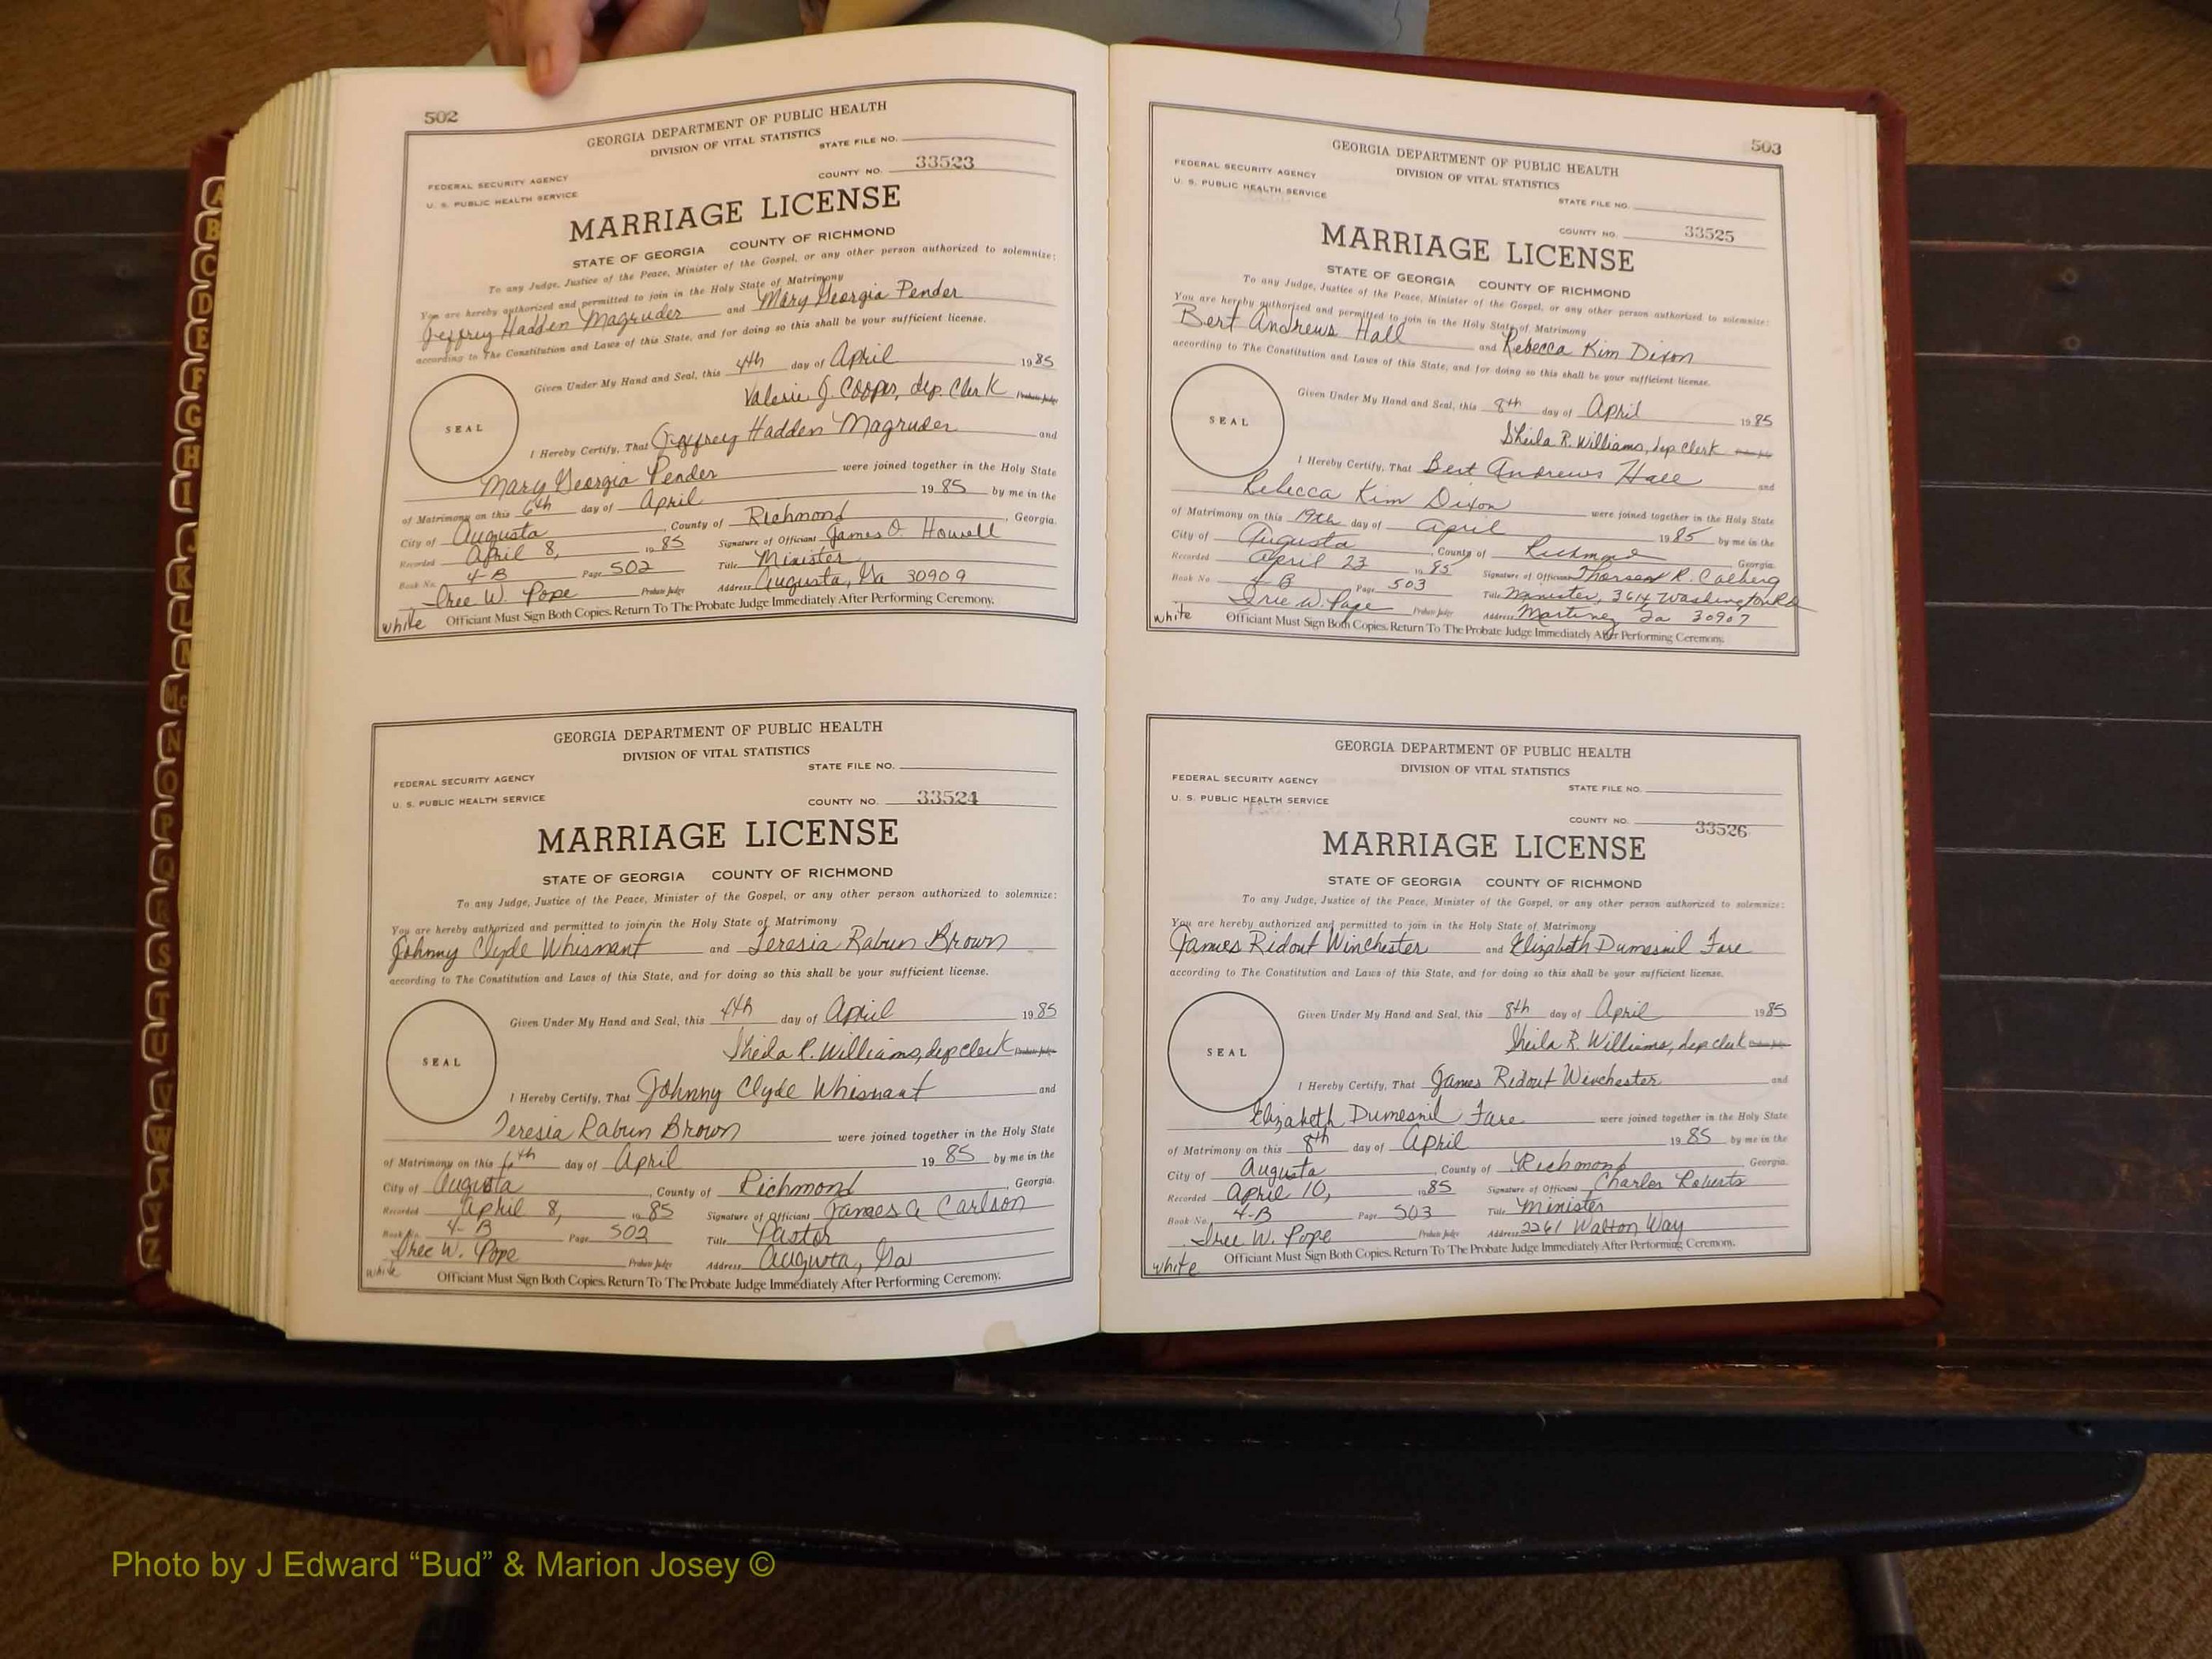 502
GEORGIA DEPARTMENT OF PUBLIC HEALTH
DIVISION OF VITAL STATISTICS
STATE FILE NO.
FEDERAL SECURITY AGENCY
COUNTY NO. 33523
U. S. PUBLIC HEALTH SERVICE
MARRIAGE LICENSE
STATE OF GEORGIA COUNTY OF RICHMOND
To any Judge, Justice of the Peace, Minister of the Gospel, or any other person authorized to solemnize:
You are hereby authorized and permitted to join in the Holy State of Matrimony
Jeffrey Hadden Magruder and Mary Georgia Pender
according to The Constitution and Laws of this State, and for doing so this shall be your sufficient license.
Given Under My Hand and Seal, this 4th day of April 1985
Valerie J. Cooper, dep. Clerk Probate Judge
SEAL
I Hereby Certify, That Jeffrey Hadden Magruder and
Mary Georgia Pender were joined together in the Holy State
of Matrimony on this 6th day of April 1985 by me in the
City of Augusta, County of Richmond, Georgia.
Recorded April 8, 1985 Signature of Officiant James O. Howell
Book No. 4-B Page 502 Title Minister
Iree W. Pope Probate Judge Address Augusta, Ga 30909
white Officiant Must Sign Both Copies. Return To The Probate Judge Immediately After Performing Ceremony.
GEORGIA DEPARTMENT OF PUBLIC HEALTH
DIVISION OF VITAL STATISTICS
STATE FILE NO.
FEDERAL SECURITY AGENCY
U. S. PUBLIC HEALTH SERVICE COUNTY NO. 33524
MARRIAGE LICENSE
STATE OF GEORGIA COUNTY OF RICHMOND
To any Judge, Justice of the Peace, Minister of the Gospel, or any other person authorized to solemnize:
You are hereby authorized and permitted to join in the Holy State of Matrimony
Johnny Clyde Whisnant and Teresia Rabun Brown
according to The Constitution and Laws of this State, and for doing so this shall be your sufficient license.
Given Under My Hand and Seal, this 4th day of April 1985
Sheila R. Williams, dep clerk Probate Judge
SEAL
I Hereby Certify, That Johnny Clyde Whisnant and
Teresia Rabun Brown were joined together in the Holy State
of Matrimony on this 6th day of April 1985 by me in the
City of Augusta, County of Richmond, Georgia.
Recorded April 8, 1985 Signature of Officiant James A Carlson
Book No. 4-B Page 502 Title Pastor
Iree W. Pope Probate Judge Address Augusta, Ga
white Officiant Must Sign Both Copies. Return To The Probate Judge Immediately After Performing Ceremony.
503
GEORGIA DEPARTMENT OF PUBLIC HEALTH
DIVISION OF VITAL STATISTICS
FEDERAL SECURITY AGENCY
U. S. PUBLIC HEALTH SERVICE
STATE FILE NO.
COUNTY NO. 33525
MARRIAGE LICENSE
STATE OF GEORGIA COUNTY OF RICHMOND
To any Judge, Justice of the Peace, Minister of the Gospel, or any other person authorized to solemnize:
You are hereby authorized and permitted to join in the Holy State of Matrimony
Bert Andrews Hall and Rebecca Kim Dixon
according to The Constitution and Laws of this State, and for doing so this shall be your sufficient license.
Given Under My Hand and Seal, this 8th day of April 1985
Sheila R. Williams, dep clerk Probate Judge
SEAL
I Hereby Certify, That Bert Andrews Hall and
Rebecca Kim Dixon were joined together in the Holy State
of Matrimony on this 19th day of April 1985 by me in the
City of Augusta, County of Richmond Georgia.
Recorded April 23 1985 Signature of Officiant R.
Book No. 4-B Page 503 Title Minister, 3614 Washington Rd
Iree W. Pope Probate Judge Address Martinez Ga 30907
white Officiant Must Sign Both Copies. Return To The Probate Judge Immediately After Performing Ceremony.
GEORGIA DEPARTMENT OF PUBLIC HEALTH
DIVISION OF VITAL STATISTICS
FEDERAL SECURITY AGENCY
STATE FILE NO.
U. S. PUBLIC HEALTH SERVICE
COUNTY NO. 33526
MARRIAGE LICENSE
STATE OF GEORGIA COUNTY OF RICHMOND
To any Judge, Justice of the Peace, Minister of the Gospel, or any other person authorized to solemnize:
You are hereby authorized and permitted to join in the Holy State of Matrimony
James Ridout Winchester and Elizabeth Dumesnil Fare
according to The Constitution and Laws of this State, and for doing so this shall be your sufficient license.
Given Under My Hand and Seal, this 8th day of April 1985
Sheila R. Williams, dep clerk Probate Judge
SEAL
I Hereby Certify, That James Ridout Winchester and
Elizabeth Dumesnil Fare were joined together in the Holy State
of Matrimony on this 8th day of April 1985 by me in the
City of Augusta, County of Richmond Georgia.
Recorded April 10, 1985 Signature of Officiant Charles Roberts
Book No. 4-B Page 503 Title Minister
Iree W. Pope Probate Judge Address 2261 Walton Way
white Officiant Must Sign Both Copies. Return To The Probate Judge Immediately After Performing Ceremony.
Photo by J Edward “Bud” & Marion Josey ©